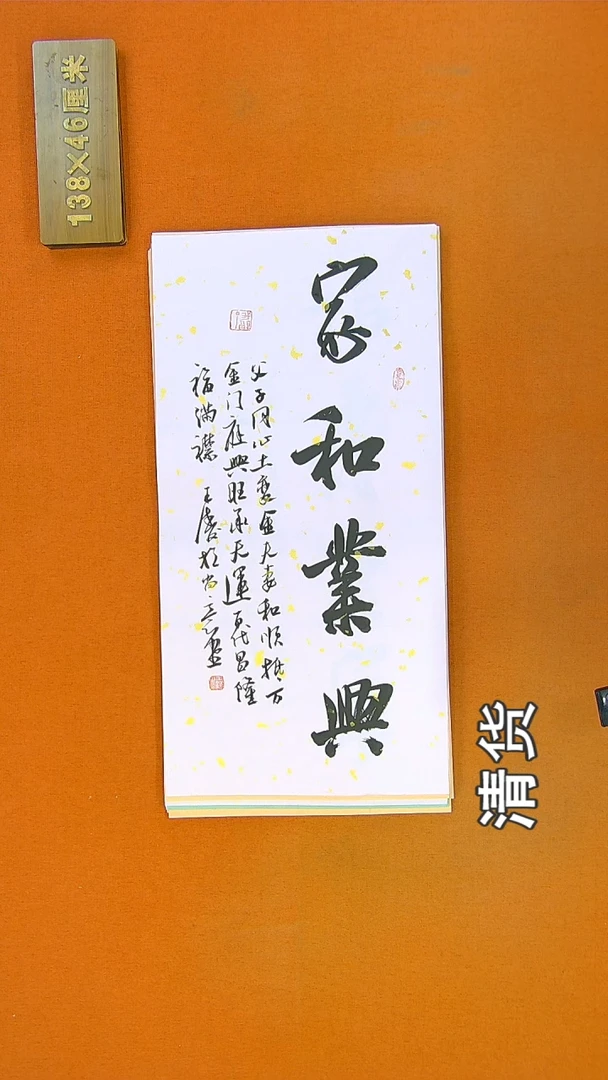 138×46厘米
家和業興
父子同心土變金夫妻和順抵万
金门庭興旺承天運百代昌隆
福满襟
清货